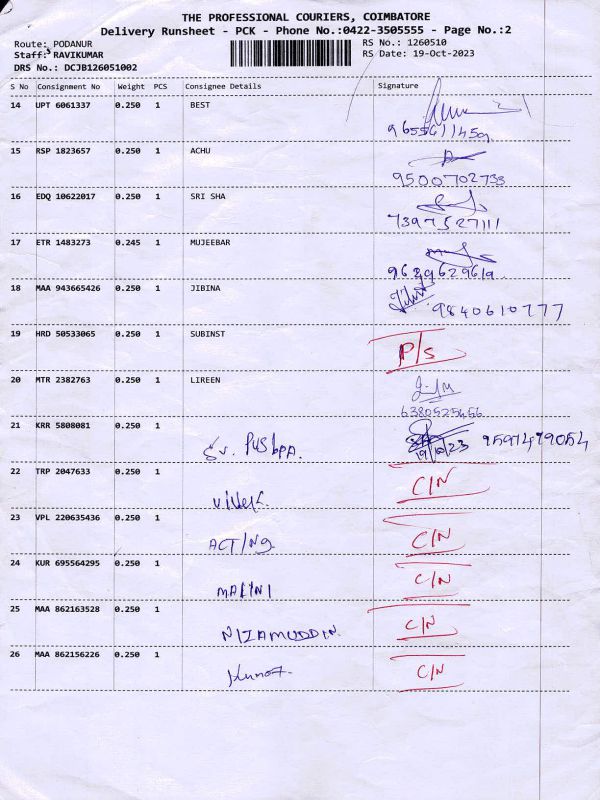 THE PROFESSIONAL COURIERS, COIMBATORE
Delivery Runsheet - PCK - Phone No.:0422-3505555 - Page No.:2
Route: PODANUR RS No.: 1260510
Staff: RAVIKUMAR RS Date: 19-Oct-2023
DRS No.: DCJB126051002
S No Consignment No Weight PCS Consignee Details Signature
14 UPT 6061337 0.250 1 BEST
9655611459
15 RSP 1823657 0.250 1 ACHU
9500702733
16 EDQ 10622017 0.250 1 SRI SHA
7397527111
17 ETR 1483273 0.245 1 MUJEEBAR
9629629619
18 MAA 943665426 0.250 1 JIBINA
9840610777
19 HRD 50533065 0.250 1 SUBINST P/S
20 MTR 2382763 0.250 1 LIREEN
6380525456
21 KRR 5808081 0.250 1 PUSHPA
19/10/23 9597479054
22 TRP 2047633 0.250 1 C/N
Vivek
23 VPL 220635436 0.250 1 C/N
ACTING
24 KUR 695564295 0.250 1 C/N
MALINI
25 MAA 862163528 0.250 1 C/N
NIZAMUDDIN
26 MAA 862156226 0.250 1 C/N
Kumar